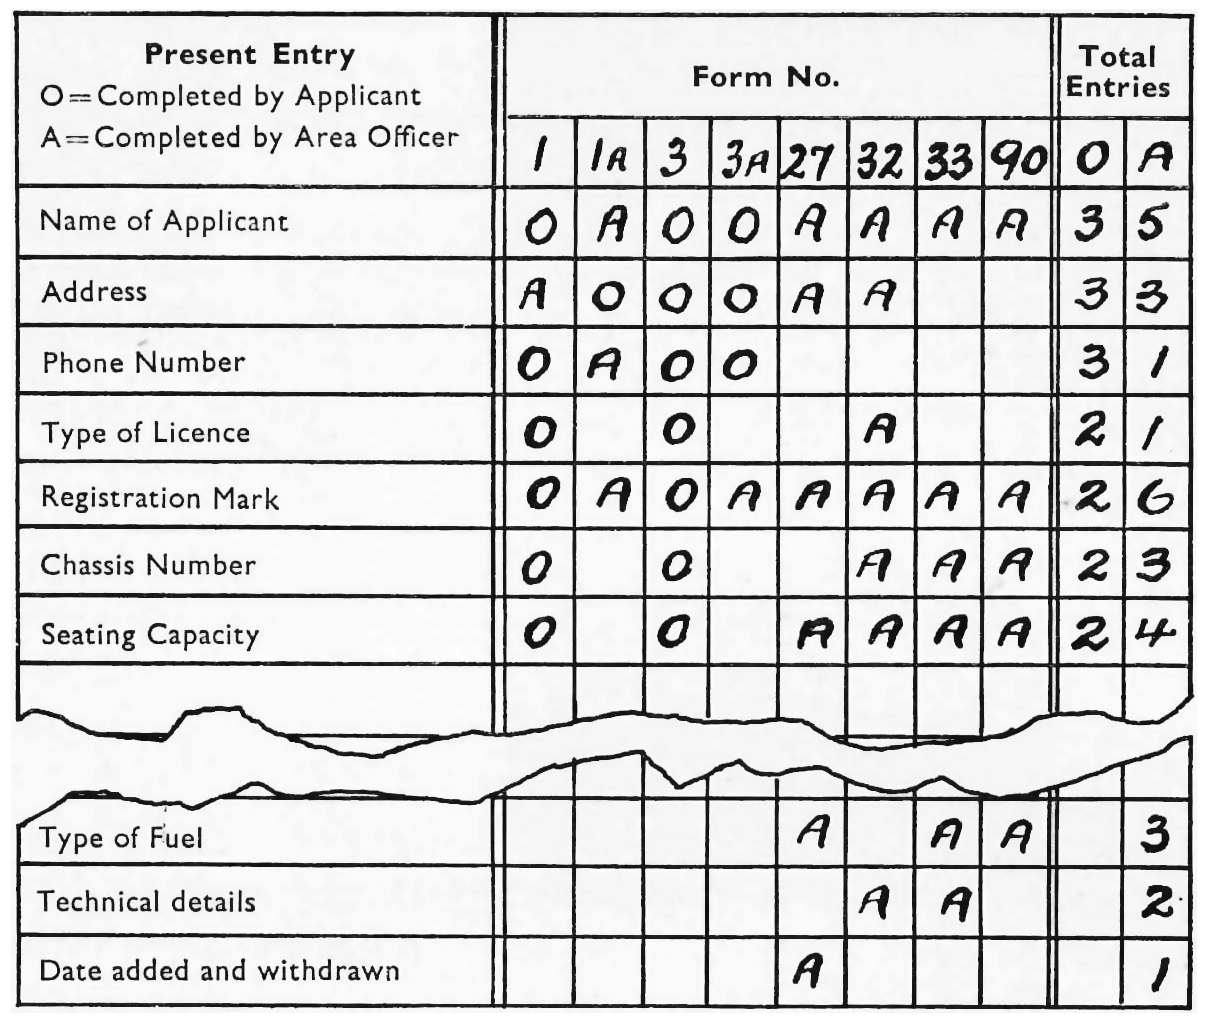 Present Entry
O=Completed by Applicant
A=Completed by Area Officer
Form No.
Total
Entries
1 1A 3 3A 27 32 33 90 O A
Name of Applicant O A O O A A A A 3 5
Address A O O O A A 3 3
Phone Number O A O O 3 1
Type of Licence O O A 2 1
Registration Mark O A O A A A A A 2 6
Chassis Number O O A A A 2 3
Seating Capacity O O A A A A 2 4
Type of Fuel A A A 3
Technical details A A 2
Date added and withdrawn A 1